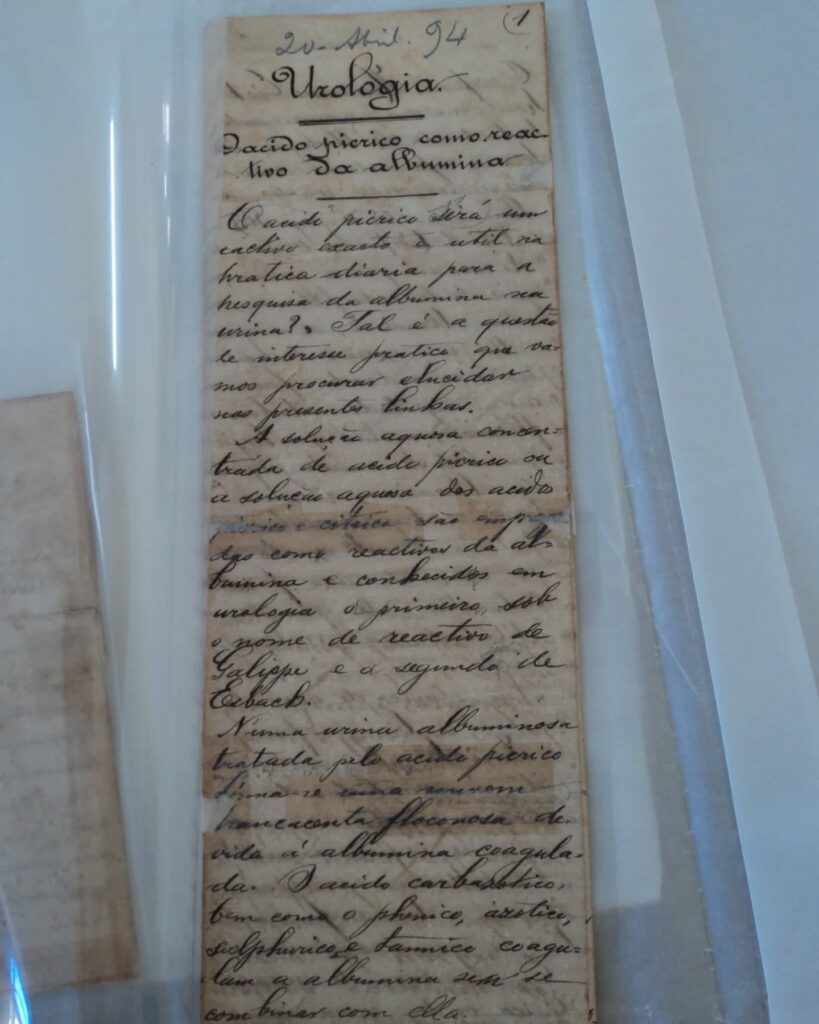 1
20 - Abril. 94
Urologia.
O acido picrico como reac-
tivo da albumina.
O acido picrico será um
reactivo exacto e util na
pratica diaria para a
pesquisa da albumina na
urina? Tal é a questão
de interesse pratico que va-
mos procurar elucidar
nas presentes linhas.
A solução aquosa concen-
trada de acido picrico ou
a solução aquosa dos acidos
picrico e citrico são emprega
das como reactivos da al-
bumina e conhecidos em
urologia o primeiro, sob
o nome de reactivo de
Galippe e o segundo de
Esbach.
N'uma urina albuminosa
tratada pelo acido picrico
fórma-se uma nuvem
brancacenta floconosa de-
vida á albumina coagula-
da. O acido carbazotico,
bem como o phenico, azotico,
sulphurico, e tannico coagu-
lam a albumina sem se
combinar com ella.